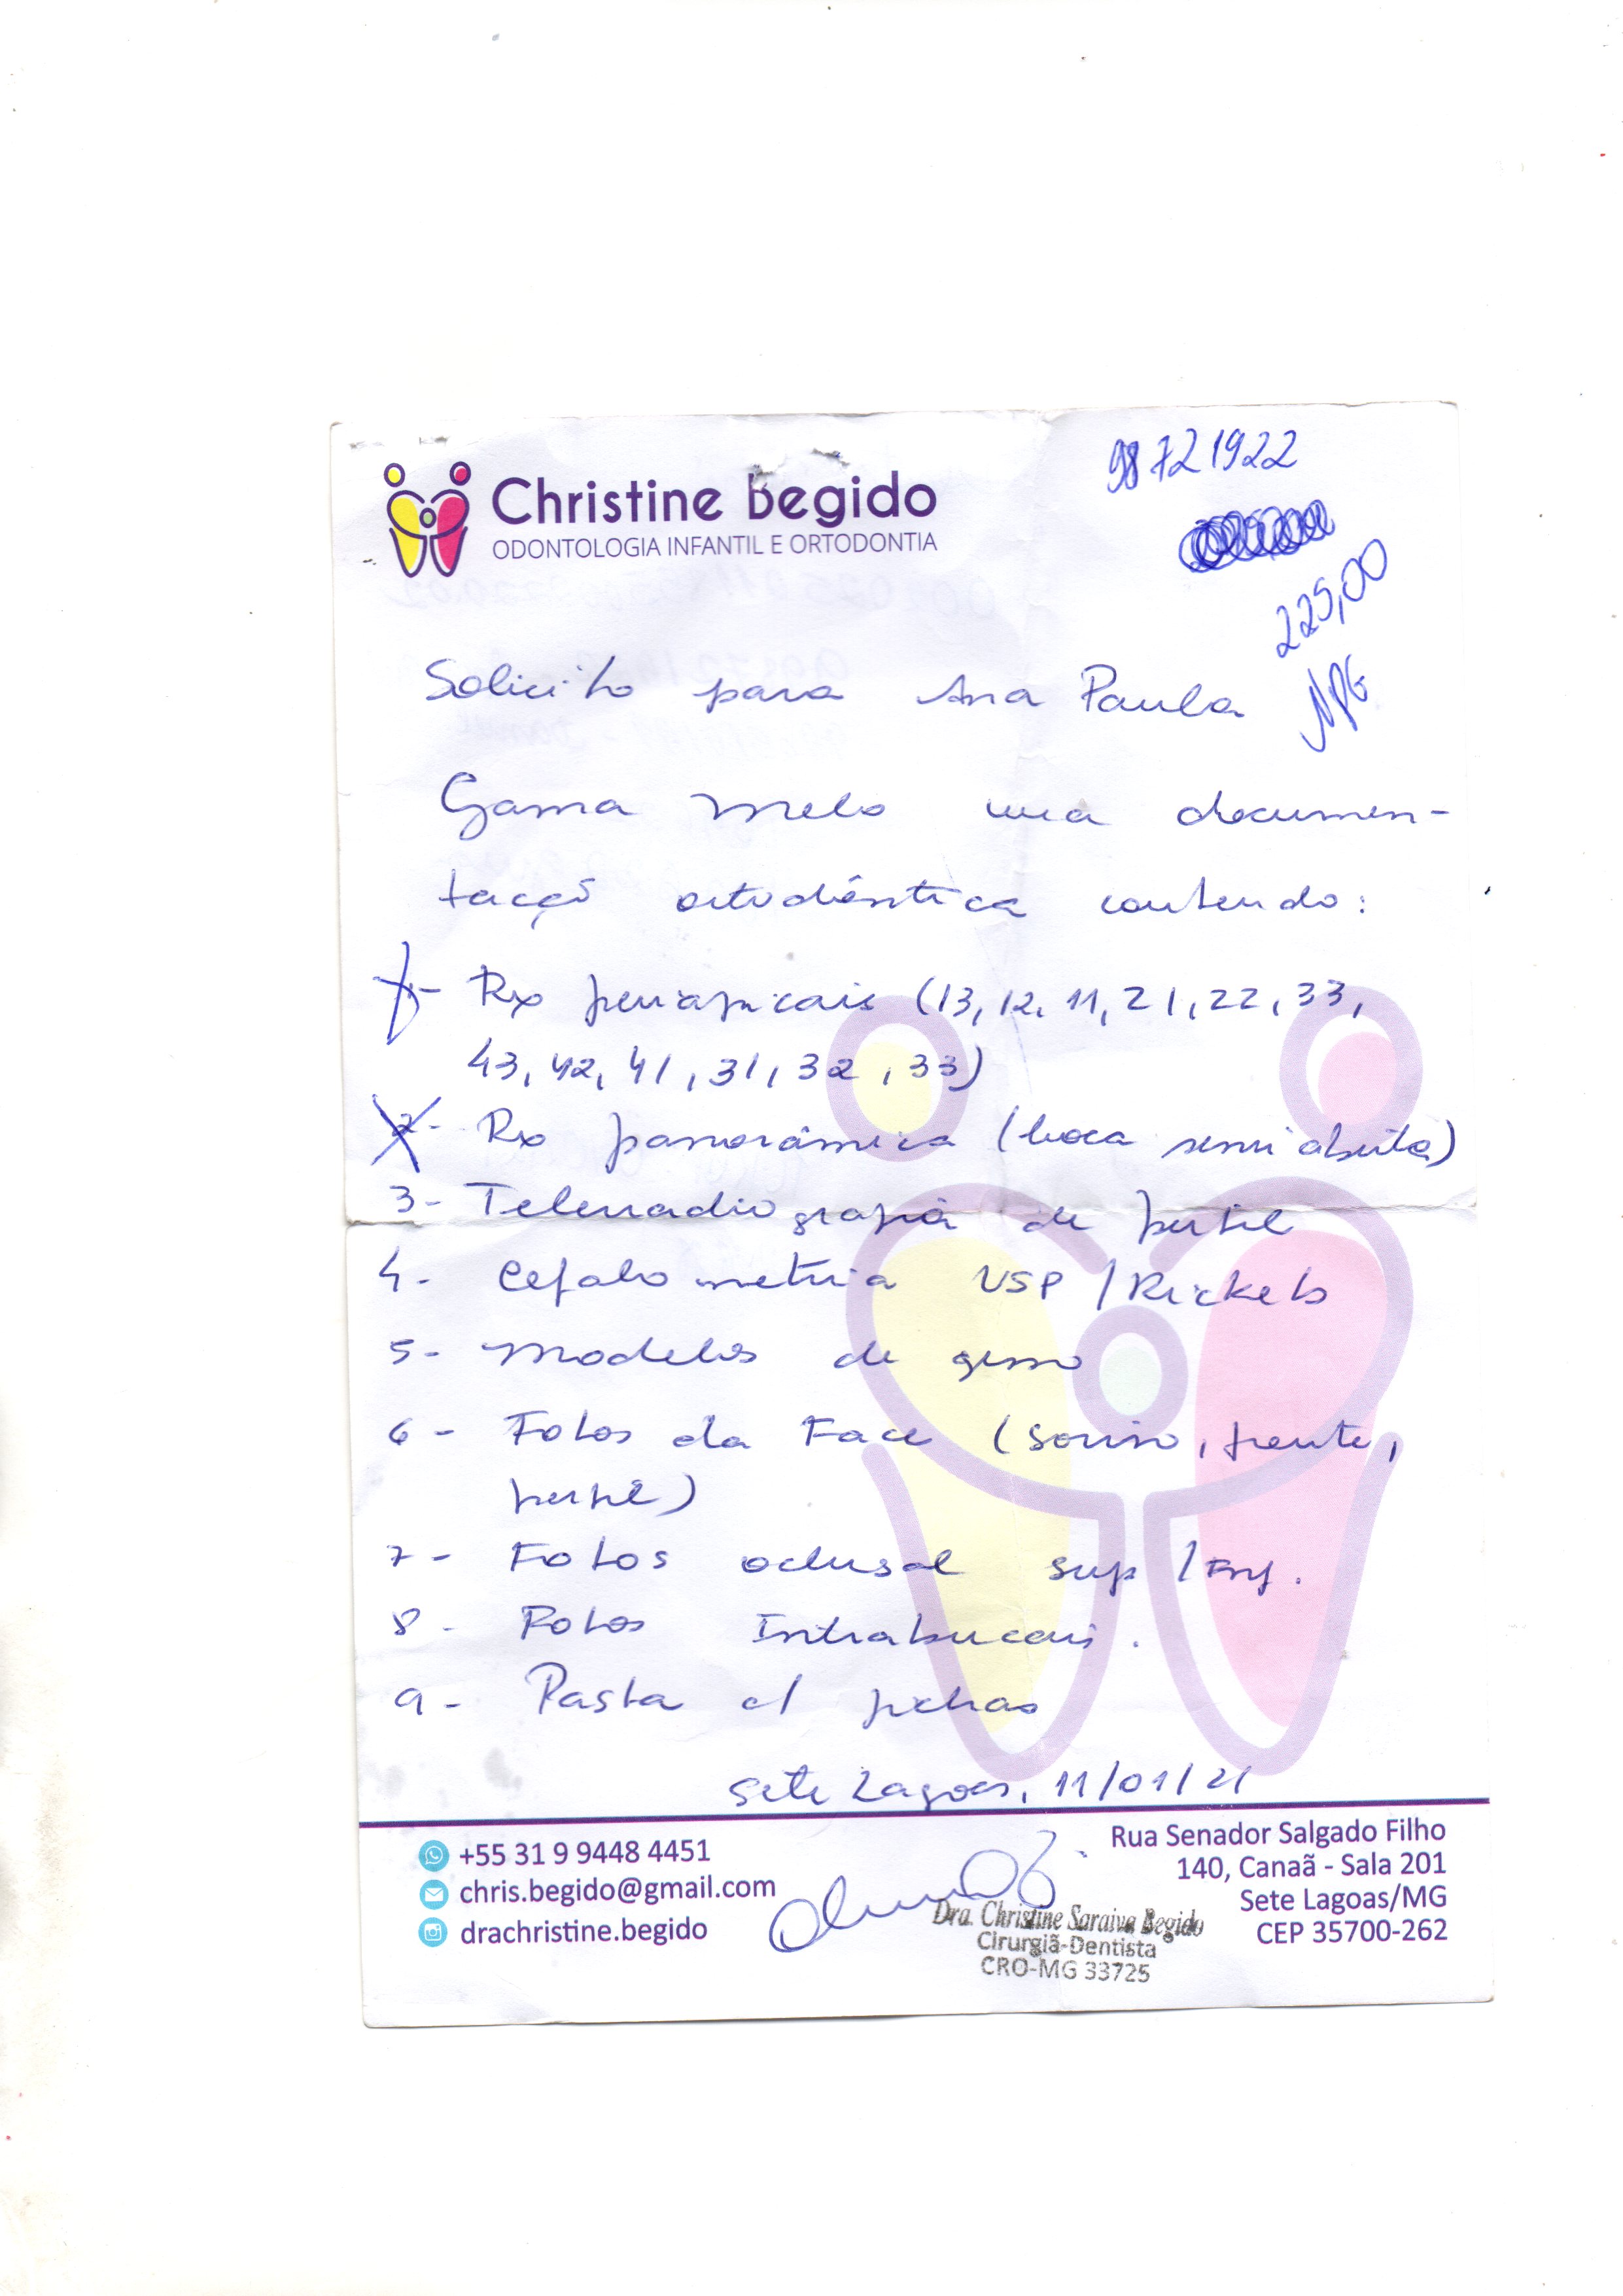 Christine Begido
ODONTOLOGIA INFANTIL E ORTODONTIA
98721922
225,00
Solicito para Ana Paula
Gama Melo uma documen-
tação ortodôntica contendo:
1- Rx periapicais (13, 12, 11, 21, 22, 33,
43, 42, 41, 31, 32, 33)
2- Rx panorâmica (boca semi aberta)
3- Telerradiografia de perfil
4- Cefalometria USP / Rickets
5- Modelos de gesso
6- Fotos da Face (sorriso, frente,
perfil)
7- Fotos oclusal sup / Inf.
8- Fotos Intrabucais.
9- Pasta c/ fichas
Sete Lagoas, 11/01/21
+55 31 9 9448 4451
chris.begido@gmail.com
drachristine.begido
Dra. Christine Saraiva Begido
Cirurgiã-Dentista
CRO-MG 33725
Rua Senador Salgado Filho
140, Canaã - Sala 201
Sete Lagoas/MG
CEP 35700-262